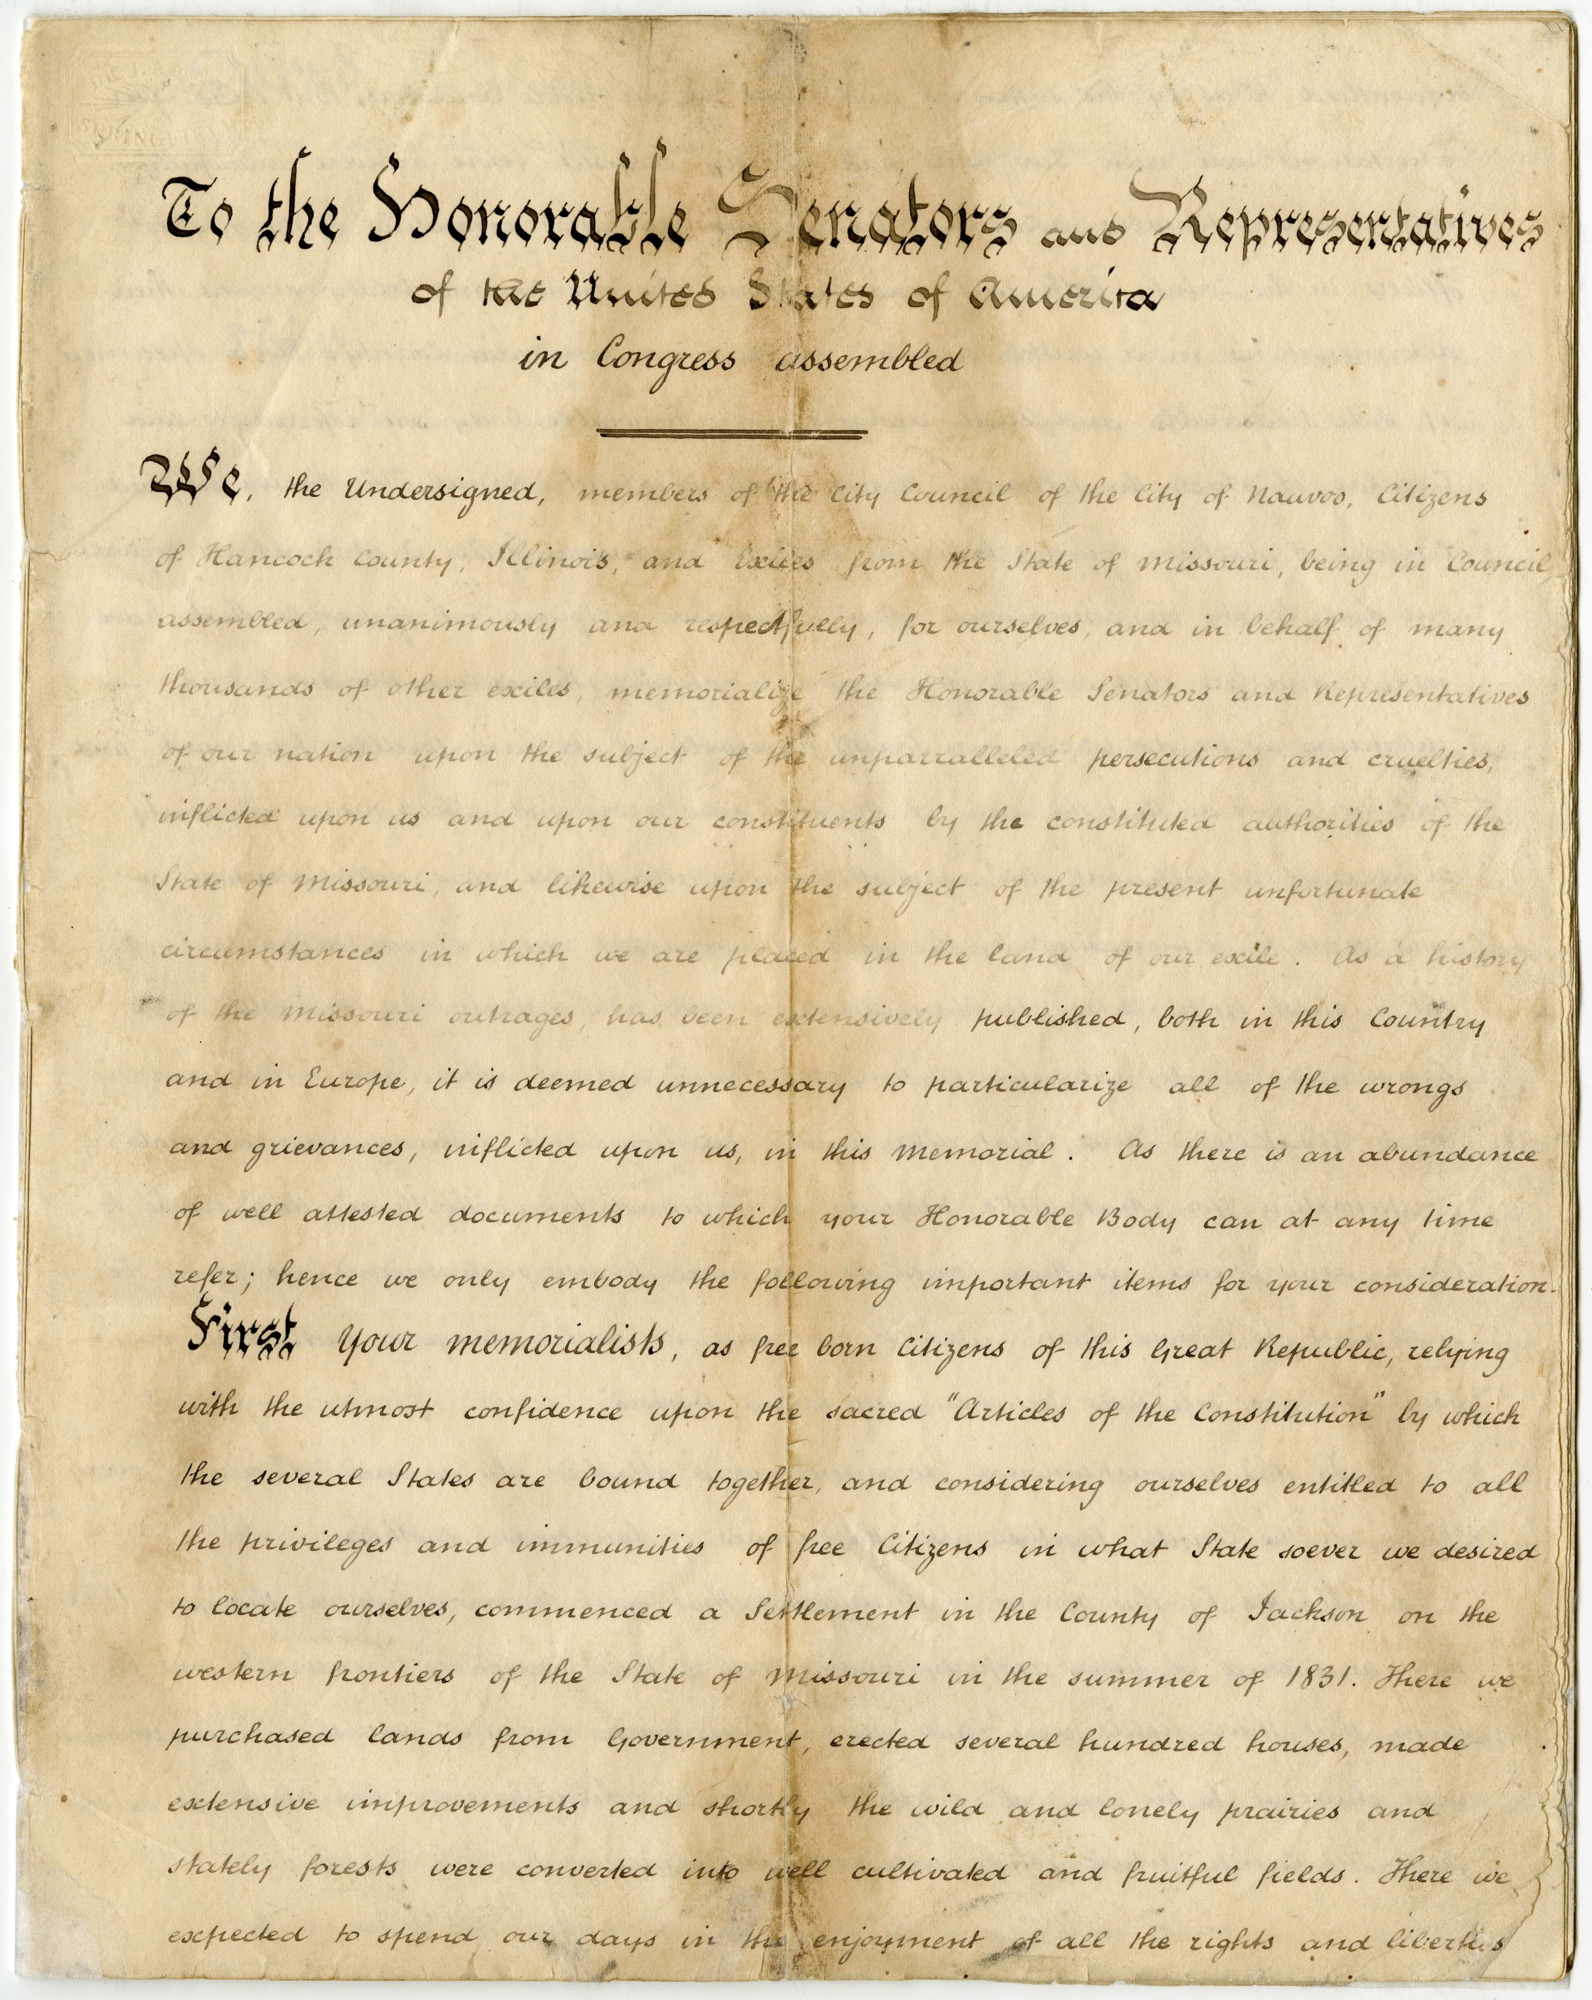 To the Honorable Senators and Representatives
of the United States of America
in Congress assembled
We, the Undersigned, members of the City Council of the City of Nauvoo, Citizens
of Hancock County, Illinois, and Exiles from the State of Missouri, being in Council
assembled, unanimously and respectfully, for ourselves, and in behalf of many
thousands of other exiles, memorialize the Honorable Senators and Representatives
of our nation upon the subject of the unparralleled persecutions and cruelties,
inflicted upon us and upon our constituents by the constituted authorities of the
State of Missouri, and likewise upon the subject of the present unfortunate
circumstances in which we are placed in the land of our exile. As a history
of the Missouri outrages, has been extensively published, both in this Country
and in Europe, it is deemed unnecessary to particularize all of the wrongs
and grievances, inflicted upon us, in this memorial. As there is an abundance
of well attested documents to which your Honorable Body can at any time
refer; hence we only embody the following important items for your consideration.
First Your memorialists, as free born Citizens of this Great Republic, relying
with the utmost confidence upon the sacred "Articles of the Constitution" by which
the several States are bound together, and considering ourselves entitled to all
the privileges and immunities of free Citizens in what State soever we desired
to locate ourselves, commenced a Settlement in the County of Jackson on the
western frontiers of the State of Missouri in the summer of 1831. There we
purchased lands from Government, erected several hundred houses, made
extensive improvements and shortly the wild and lonely prairies and
stately forests were converted into well cultivated and fruitful fields. There we
expected to spend our days in the enjoyment of all the rights and liberties